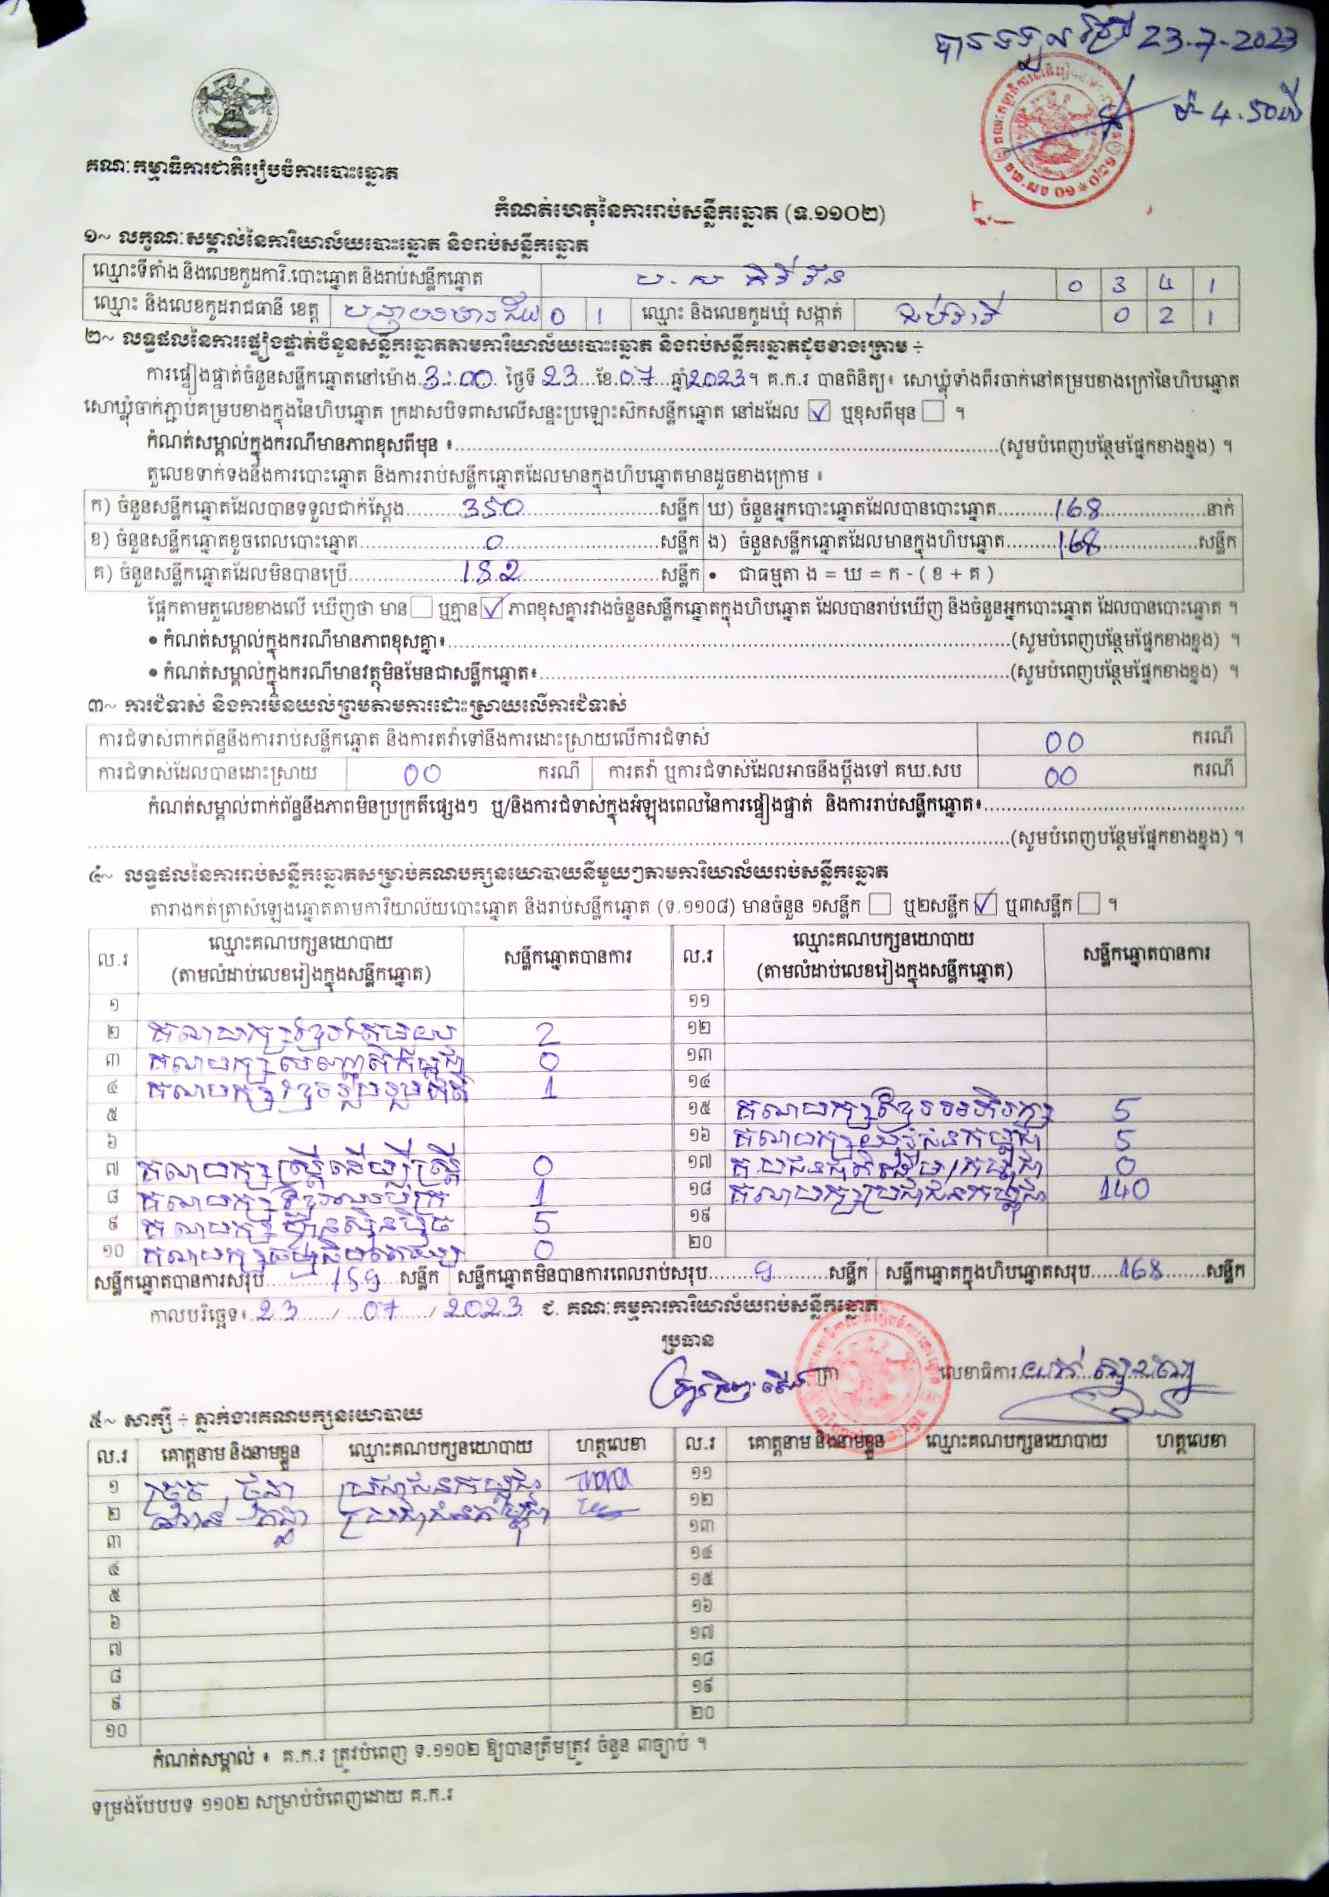 បានទទួល ថ្ងៃទី 23-7-2023
ម៉.4.50
គណៈកម្មាធិការជាតិរៀបចំការបោះឆ្នោត
កំណត់ហេតុនៃការរាប់សន្លឹកឆ្នោត (ទ.១១០២)
១~ លក្ខណៈសម្គាល់នៃការិយាល័យបោះឆ្នោត និងរាប់សន្លឹកឆ្នោត
ឈ្មោះទីតាំង និងលេខកូដការិ.បោះឆ្នោត និងរាប់សន្លឹកឆ្នោត ប.ស គិរីវ័ន 0 3 4 1
ឈ្មោះ និងលេខកូដរាជធានី ខេត្ត បន្ទាយមានជ័យ 0 1 ឈ្មោះ និងលេខកូដឃុំ សង្កាត់ 0 2 1
២~ លទ្ធផលនៃការផ្ទៀងផ្ទាត់ចំនួនសន្លឹកឆ្នោតតាមការិយាល័យបោះឆ្នោត និងរាប់សន្លឹកឆ្នោតដូចខាងក្រោម ÷
ការផ្ទៀងផ្ទាត់ចំនួនសន្លឹកឆ្នោតនៅម៉ោង 3:00 ថ្ងៃទី 23 ខែ 07 ឆ្នាំ 2023។ គ.ក.រ បានពិនិត្យ៖ សោឃ្លុំទាំងពីរចាក់នៅគម្របខាងក្រៅនៃហិបឆ្នោត
សោឃ្លុំចាក់ភ្ជាប់គម្របខាងក្នុងនៃហិបឆ្នោត ក្រដាសបិទពាសលើសន្ទះប្រឡោះស៊កសន្លឹកឆ្នោត នៅដដែល ☑ ឬខុសពីមុន ☐ ។
កំណត់សម្គាល់ក្នុងករណីមានភាពខុសពីមុន ៖ (សូមបំពេញបន្ថែមផ្នែកខាងខ្នង) ។
តួលេខទាក់ទងនឹងការបោះឆ្នោត និងការរាប់សន្លឹកឆ្នោតដែលមានក្នុងហិបឆ្នោតមានដូចខាងក្រោម ៖
ក) ចំនួនសន្លឹកឆ្នោតដែលបានទទួលជាក់ស្តែង 350 សន្លឹក ឃ) ចំនួនអ្នកបោះឆ្នោតដែលបានបោះឆ្នោត 168 នាក់
ខ) ចំនួនសន្លឹកឆ្នោតខូចពេលបោះឆ្នោត 0 សន្លឹក ង) ចំនួនសន្លឹកឆ្នោតដែលមានក្នុងហិបឆ្នោត 168 សន្លឹក
គ) ចំនួនសន្លឹកឆ្នោតដែលមិនបានប្រើ 182 សន្លឹក • ជាធម្មតា ង = ឃ = ក - ( ខ + គ )
ផ្អែកតាមតួលេខខាងលើ ឃើញថា មាន ☐ ឬគ្មាន ☑ ភាពខុសគ្នារវាងចំនួនសន្លឹកឆ្នោតក្នុងហិបឆ្នោត ដែលបានរាប់ឃើញ និងចំនួនអ្នកបោះឆ្នោត ដែលបានបោះឆ្នោត ។
• កំណត់សម្គាល់ក្នុងករណីមានភាពខុសគ្នា៖ (សូមបំពេញបន្ថែមផ្នែកខាងខ្នង) ។
• កំណត់សម្គាល់ក្នុងករណីមានវត្ថុមិនមែនជាសន្លឹកឆ្នោត៖ (សូមបំពេញបន្ថែមផ្នែកខាងខ្នង) ។
៣~ ការជំទាស់ និងការមិនយល់ព្រមតាមការដោះស្រាយលើការជំទាស់
ការជំទាស់ពាក់ព័ន្ធនឹងការរាប់សន្លឹកឆ្នោត និងការតវ៉ាទៅនឹងការដោះស្រាយលើការជំទាស់ 00 ករណី
ការជំទាស់ដែលបានដោះស្រាយ 00 ករណី ការតវ៉ា ឬការជំទាស់ដែលអាចនឹងប្តឹងទៅ គឃ.សប 00 ករណី
កំណត់សម្គាល់ពាក់ព័ន្ធនឹងភាពមិនប្រក្រតីផ្សេងៗ ឬ/និងការជំទាស់ក្នុងអំឡុងពេលនៃការផ្ទៀងផ្ទាត់ និងការរាប់សន្លឹកឆ្នោត៖
(សូមបំពេញបន្ថែមផ្នែកខាងខ្នង) ។
៤~ លទ្ធផលនៃការរាប់សន្លឹកឆ្នោតសម្រាប់គណបក្សនយោបាយនីមួយៗតាមការិយាល័យរាប់សន្លឹកឆ្នោត
តារាងកត់ត្រាសំឡេងឆ្នោតតាមការិយាល័យបោះឆ្នោត និងរាប់សន្លឹកឆ្នោត (ទ.១១០៨) មានចំនួន ១សន្លឹក ☐ ឬ២សន្លឹក ☑ ឬ៣សន្លឹក ☐ ។
ល.រ ឈ្មោះគណបក្សនយោបាយ (តាមលំដាប់លេខរៀងក្នុងសន្លឹកឆ្នោត) សន្លឹកឆ្នោតបានការ ល.រ ឈ្មោះគណបក្សនយោបាយ (តាមលំដាប់លេខរៀងក្នុងសន្លឹកឆ្នោត) សន្លឹកឆ្នោតបានការ
១ ១១
២ គណបក្សខ្មែរតែមួយ 2 ១២
៣ គណបក្សសញ្ជាតិកម្ពុជា 0 ១៣
៤ គណបក្សខ្មែររួបរួមជាតិ 1 ១៤
៥ ១៥ គណបក្សខ្មែរអភិរក្ស 5
៦ ១៦ គណបក្សយុវជនកម្ពុជា 5
៧ គណបក្សស្ត្រីដើម្បីស្ត្រី 0 ១៧ គ.បជនជាតិដើមកម្ពុជា 0
៨ គណបក្សខ្មែរឈប់ក្រ 1 ១៨ គណបក្សប្រជាជនកម្ពុជា 140
៩ គណបក្សហ៊្វុនស៊ិនប៉ិច 5 ១៩
១០ គណបក្សធម្មាធិបតេយ្យ 0 ២០
សន្លឹកឆ្នោតបានការសរុប 159 សន្លឹក សន្លឹកឆ្នោតមិនបានការពេលរាប់សរុប 9 សន្លឹក សន្លឹកឆ្នោតក្នុងហិបឆ្នោតសរុប 168 សន្លឹក
កាលបរិច្ឆេទ៖ 23 / 07 / 2023 ជ. គណៈកម្មការការិយាល័យរាប់សន្លឹកឆ្នោត
ប្រធាន
ត្រា លេខាធិការ
៥~ សាក្សី ÷ ភ្នាក់ងារគណបក្សនយោបាយ
ល.រ គោត្តនាម និងនាមខ្លួន ឈ្មោះគណបក្សនយោបាយ ហត្ថលេខា ល.រ គោត្តនាម និងនាមខ្លួន ឈ្មោះគណបក្សនយោបាយ ហត្ថលេខា
១ ប្រជាជនកម្ពុជា ១១
២ ប្រជាជនកម្ពុជា ១២
៣ ១៣
៤ ១៤
៥ ១៥
៦ ១៦
៧ ១៧
៨ ១៨
៩ ១៩
១០ ២០
កំណត់សម្គាល់ ៖ គ.ក.រ ត្រូវបំពេញ ទ.១១០២ ឱ្យបានត្រឹមត្រូវ ចំនួន ៣ច្បាប់ ។
ទម្រង់បែបបទ ១១០២ សម្រាប់បំពេញដោយ គ.ក.រ